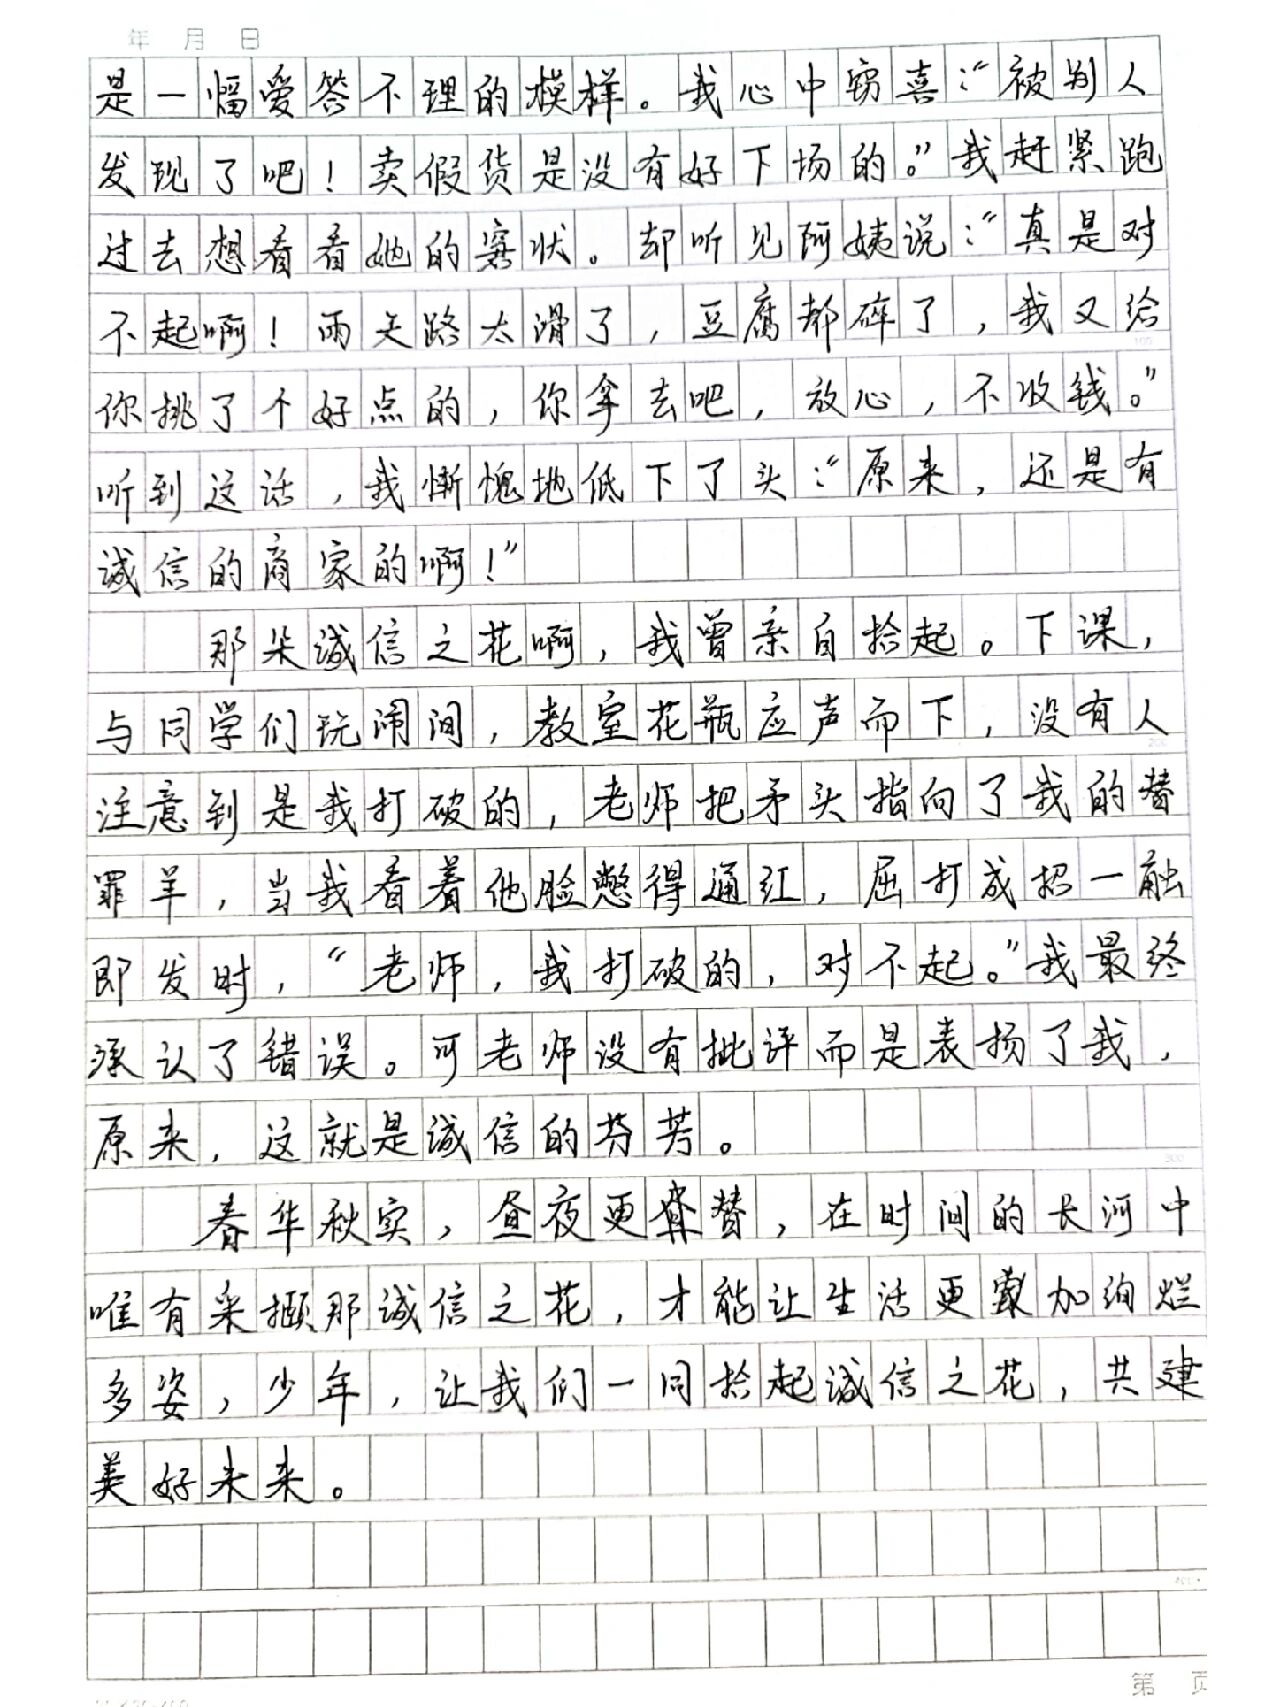 年 月 日
是一幅爱答不理的模样。我心中窃喜：“被别人
发现了吧！卖假货是没有好下场的。”我赶紧跑
过去想看看她的窘状。却听见阿姨说：“真是对
不起啊！雨天路太滑了，豆腐都碎了，我又给
你挑了个好点的，你拿去吧，放心，不收钱。”
听到这话，我惭愧地低下了头：“原来，还是有
诚信的商家的啊！”
那朵诚信之花啊，我曾亲自拾起。下课，
与同学们玩闹间，教室花瓶应声而下，没有人
注意到是我打破的，老师把矛头指向了我的替
罪羊，当我看着他脸憋得通红，屈打成招一触
即发时，“老师，我打破的，对不起。”我最终
承认了错误。可老师没有批评而是表扬了我，
原来，这就是诚信的芬芳。
春华秋实，昼夜更替，在时间的长河中
唯有采撷那诚信之花，才能让生活更加绚烂
多姿，少年，让我们一同拾起诚信之花，共建
美好未来。
第 页